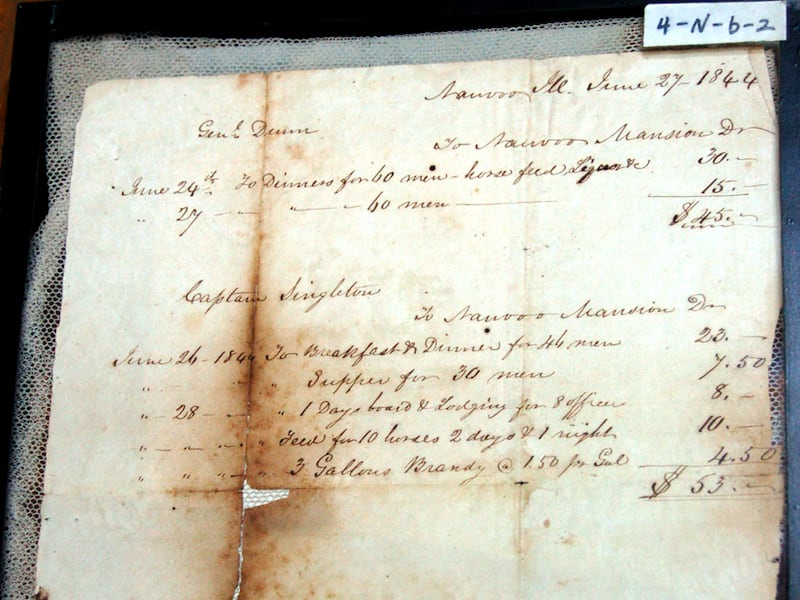 4-N-b-2
Nauvoo Ill. June 27 - 1844
Genl. Dunn
To Nauvoo Mansion Dr
June 24th. To Dinners for 60 men - horse feed Liquor &c 30.-
" 27 - - " - 60 men 15.-
$ 45.-
Captain Singleton
To Nauvoo Mansion Dr
June 26 - 1844 To Breakfast & Dinner for 46 men 23.-
" - " " Supper for 30 men 7.50
" - 28 - - " 1 Days board & Lodging for 8 officers 8.-
" - " - " " Feed for 10 horses 2 days & 1 night 10.-
" " " - " 3 Gallons Brandy @ 1.50 pr Gal 4.50
$ 53.-